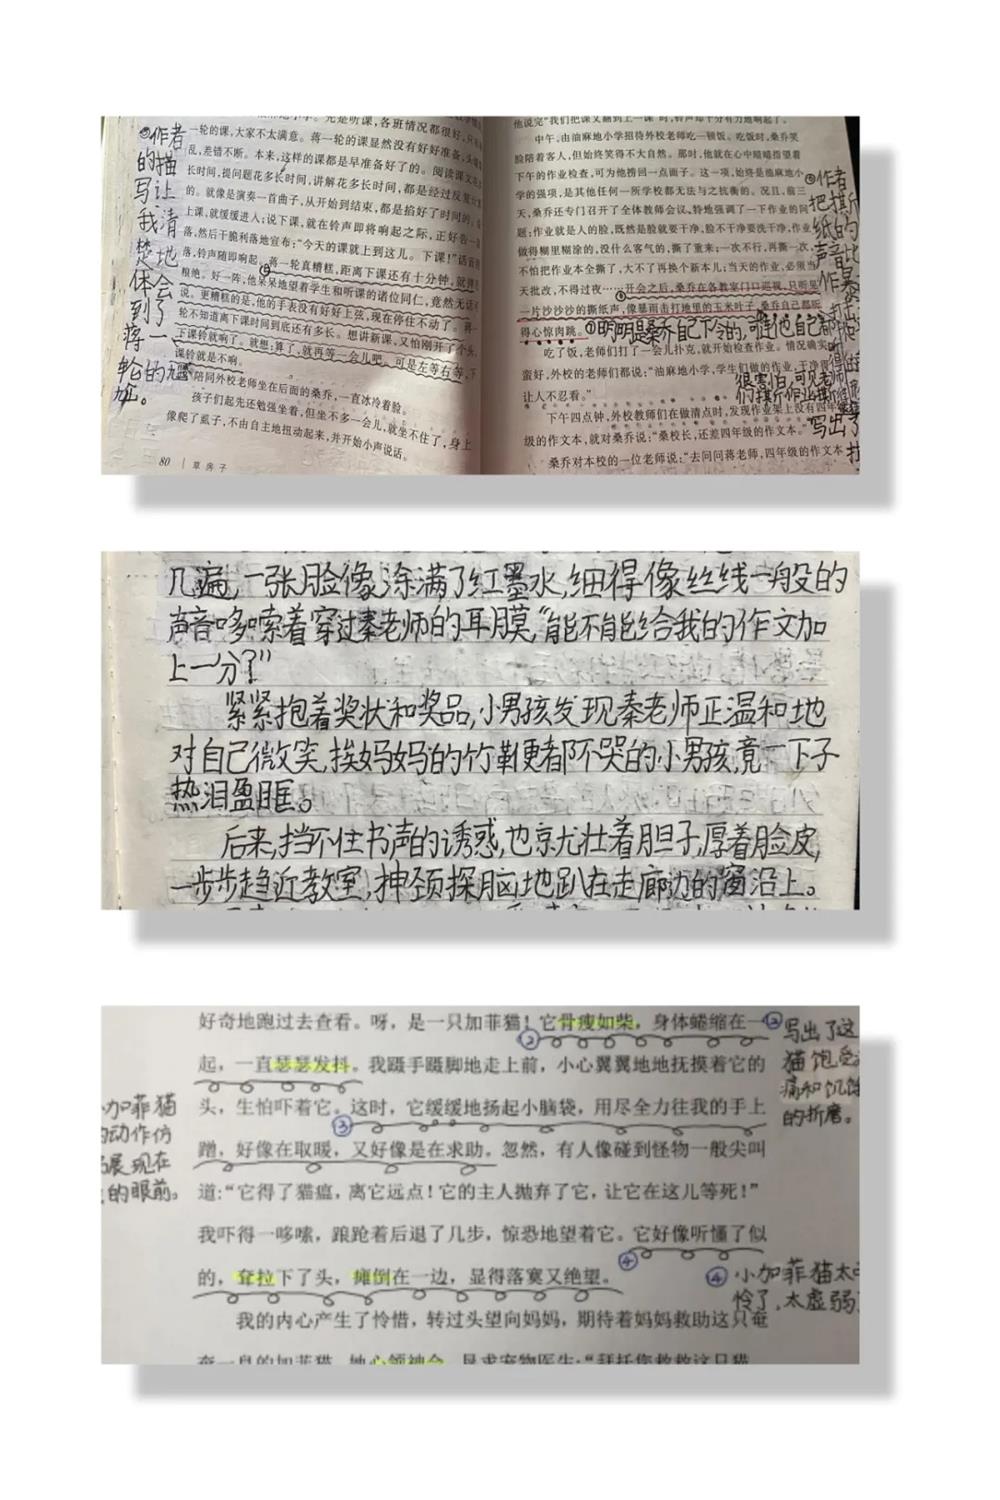 作者
的描
写让
我清
楚地
体会
到了
蒋一
轮的尴
尬。
一轮的课,大家不太满意。蒋一轮的课显然没有好好准备,头绪
乱,差错不断。本来,这样的课都是早准备好了的。阅读课文花
长时间,提问题花多长时间,讲解花多长时间,都是经过反复
的。就像是演奏一首曲子,从开始到结束,都是掐好了时间的。
上课,就缓缓进入;说下课,就在铃声即将响起之际,正好告一段
落,然后干脆利落地宣布:“今天的课就上到这儿。下课!”话音
落,铃声随即响起。蒋一轮真糟糕,距离下课还有十分钟,就
粮绝。好一阵,他呆呆地望着学生和听课的诸位同仁,竟然无话
说。更糟糕的是,他的手表没有好好上弦,现在停住不动了。蒋一
轮不知道离下课时间到底还有多长。想讲新课,又怕刚开了个头,
下课铃就响了。就想:算了,就再等一会儿吧。可是左等右等,下
课铃就是不响。
陪同外校老师坐在后面的桑乔,一直冰冷着脸。
孩子们起先还勉强坐着,但坐不多一会儿,就坐不住了,身上
像爬了虱子,不由自主地扭动起来,并开始小声说话。
80 | 草房子
他说完“我们把课文翻到上一课”时,铃声却十分有力地响起了。
中午,由油麻地小学招待外校老师吃一顿饭。吃饭时,桑乔笑
脸陪着客人,但始终笑得不大自然。那时,他就在心中暗暗指望着
下午的作业检查,可为他捞回一点面子。这一项,始终是油麻地小
学的强项,是其他任何一所学校都无法与之抗衡的。况且,前三
天,桑乔还专门召开了全体教师会议,特地强调了一下作业的问
题:作业就是人的脸,既然是脸就要干净,脸不干净要洗干净,作业
做得糊里糊涂的,没什么客气的,撕了重来;一次不行,再撕一次,
不怕把作业本全撕了,大不了再换个新本儿;当天的作业,必须当
天批改,不得过夜……开会之后,桑乔在各教室门口巡视,只听见
一片沙沙沙的撕纸声,像暴雨击打地里的玉米叶子,桑乔自己都听
得心惊肉跳。①明明是桑乔自己下令的,可连他自己都
吃了饭,老师们打了一会儿扑克,就开始检查作业。情况确实
蛮好,外校的老师们都说:“油麻地小学,学生们做的作业,干净得
让人不忍看。”
很害怕,可见老师
们撕作业撕
下午四点钟,外校教师们在做清点时,发现作业架上没有四年
级的作文本,就对桑乔说:“桑校长,还差四年级的作文本。”
桑乔对本校的一位老师说:“去问问蒋老师,四年级的作文本
作者
把撕
纸的
声音比
作暴
写出了
几遍,一张脸像涂满了红墨水,细得像丝线一般的
声音哆嗦着穿过秦老师的耳膜,“能不能给我的作文加
上一分?”
紧紧抱着奖状和奖品,小男孩发现秦老师正温和地
对自己微笑,挨妈妈的竹鞭更都不哭的小男孩,竟一下子
热泪盈眶。
后来,挡不住书声的诱惑,也就壮着胆子,厚着脸皮,
一步步趋近教室,抻颈探脑地趴在走廊边的窗沿上。
好奇地跑过去查看。呀,是一只加菲猫!它骨瘦如柴,身体蜷缩在一
起,一直瑟瑟发抖。我蹑手蹑脚地走上前,小心翼翼地地抚摸着它的
头,生怕吓着它。这时,它缓缓地扬起小脑袋,用尽全力往我的手上
蹭,好像在取暖,又好像是在求助。忽然,有人像碰到怪物一般尖叫
道:“它得了猫瘟,离它远点!它的主人抛弃了它,让它在这儿等死!”
我吓得一哆嗦,踉跄着后退了几步,惊恐地望着它。它好像听懂了似
的,耷拉下了头,瘫倒在一边,显得落寞又绝望。
我的内心产生了怜惜,转过头望向妈妈,期待着妈妈救助这只奄
奄一息的加菲猫。她心领神会,恳求宠物医生:“拜托你救救这只猫
②写出了这
猫饱受
痛和饥饿
的折磨。
小加菲猫
的动作仿
展现在
的眼前。
④小加菲猫太可
怜了,太虚弱